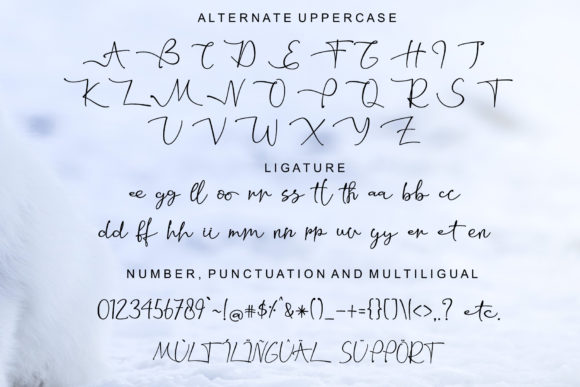 ALTERNATE UPPERCASE
A B C D E F G H I J
K L M N O P Q R S T
U V W X Y Z
LIGATURE
ee gg ll oo rr ss tt th aa bb cc
dd ff hh ii mm nn pp uu yy er et en
NUMBER, PUNCTUATION AND MULTILIGUAL
0123456789`~!@#$%^&*()_-+={}[]\|<>,.? etc.
MÙLTÎLÏÑGÜÄL SÜPPÖRT